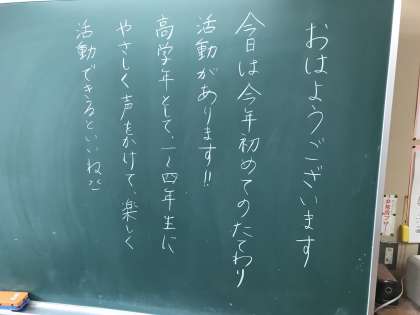 おはようございます
今日は今年初めてのたてわり
活動があります!!
高学年として、一〜四年生に
やさしく声をかけて、楽しく
活動できるといいね